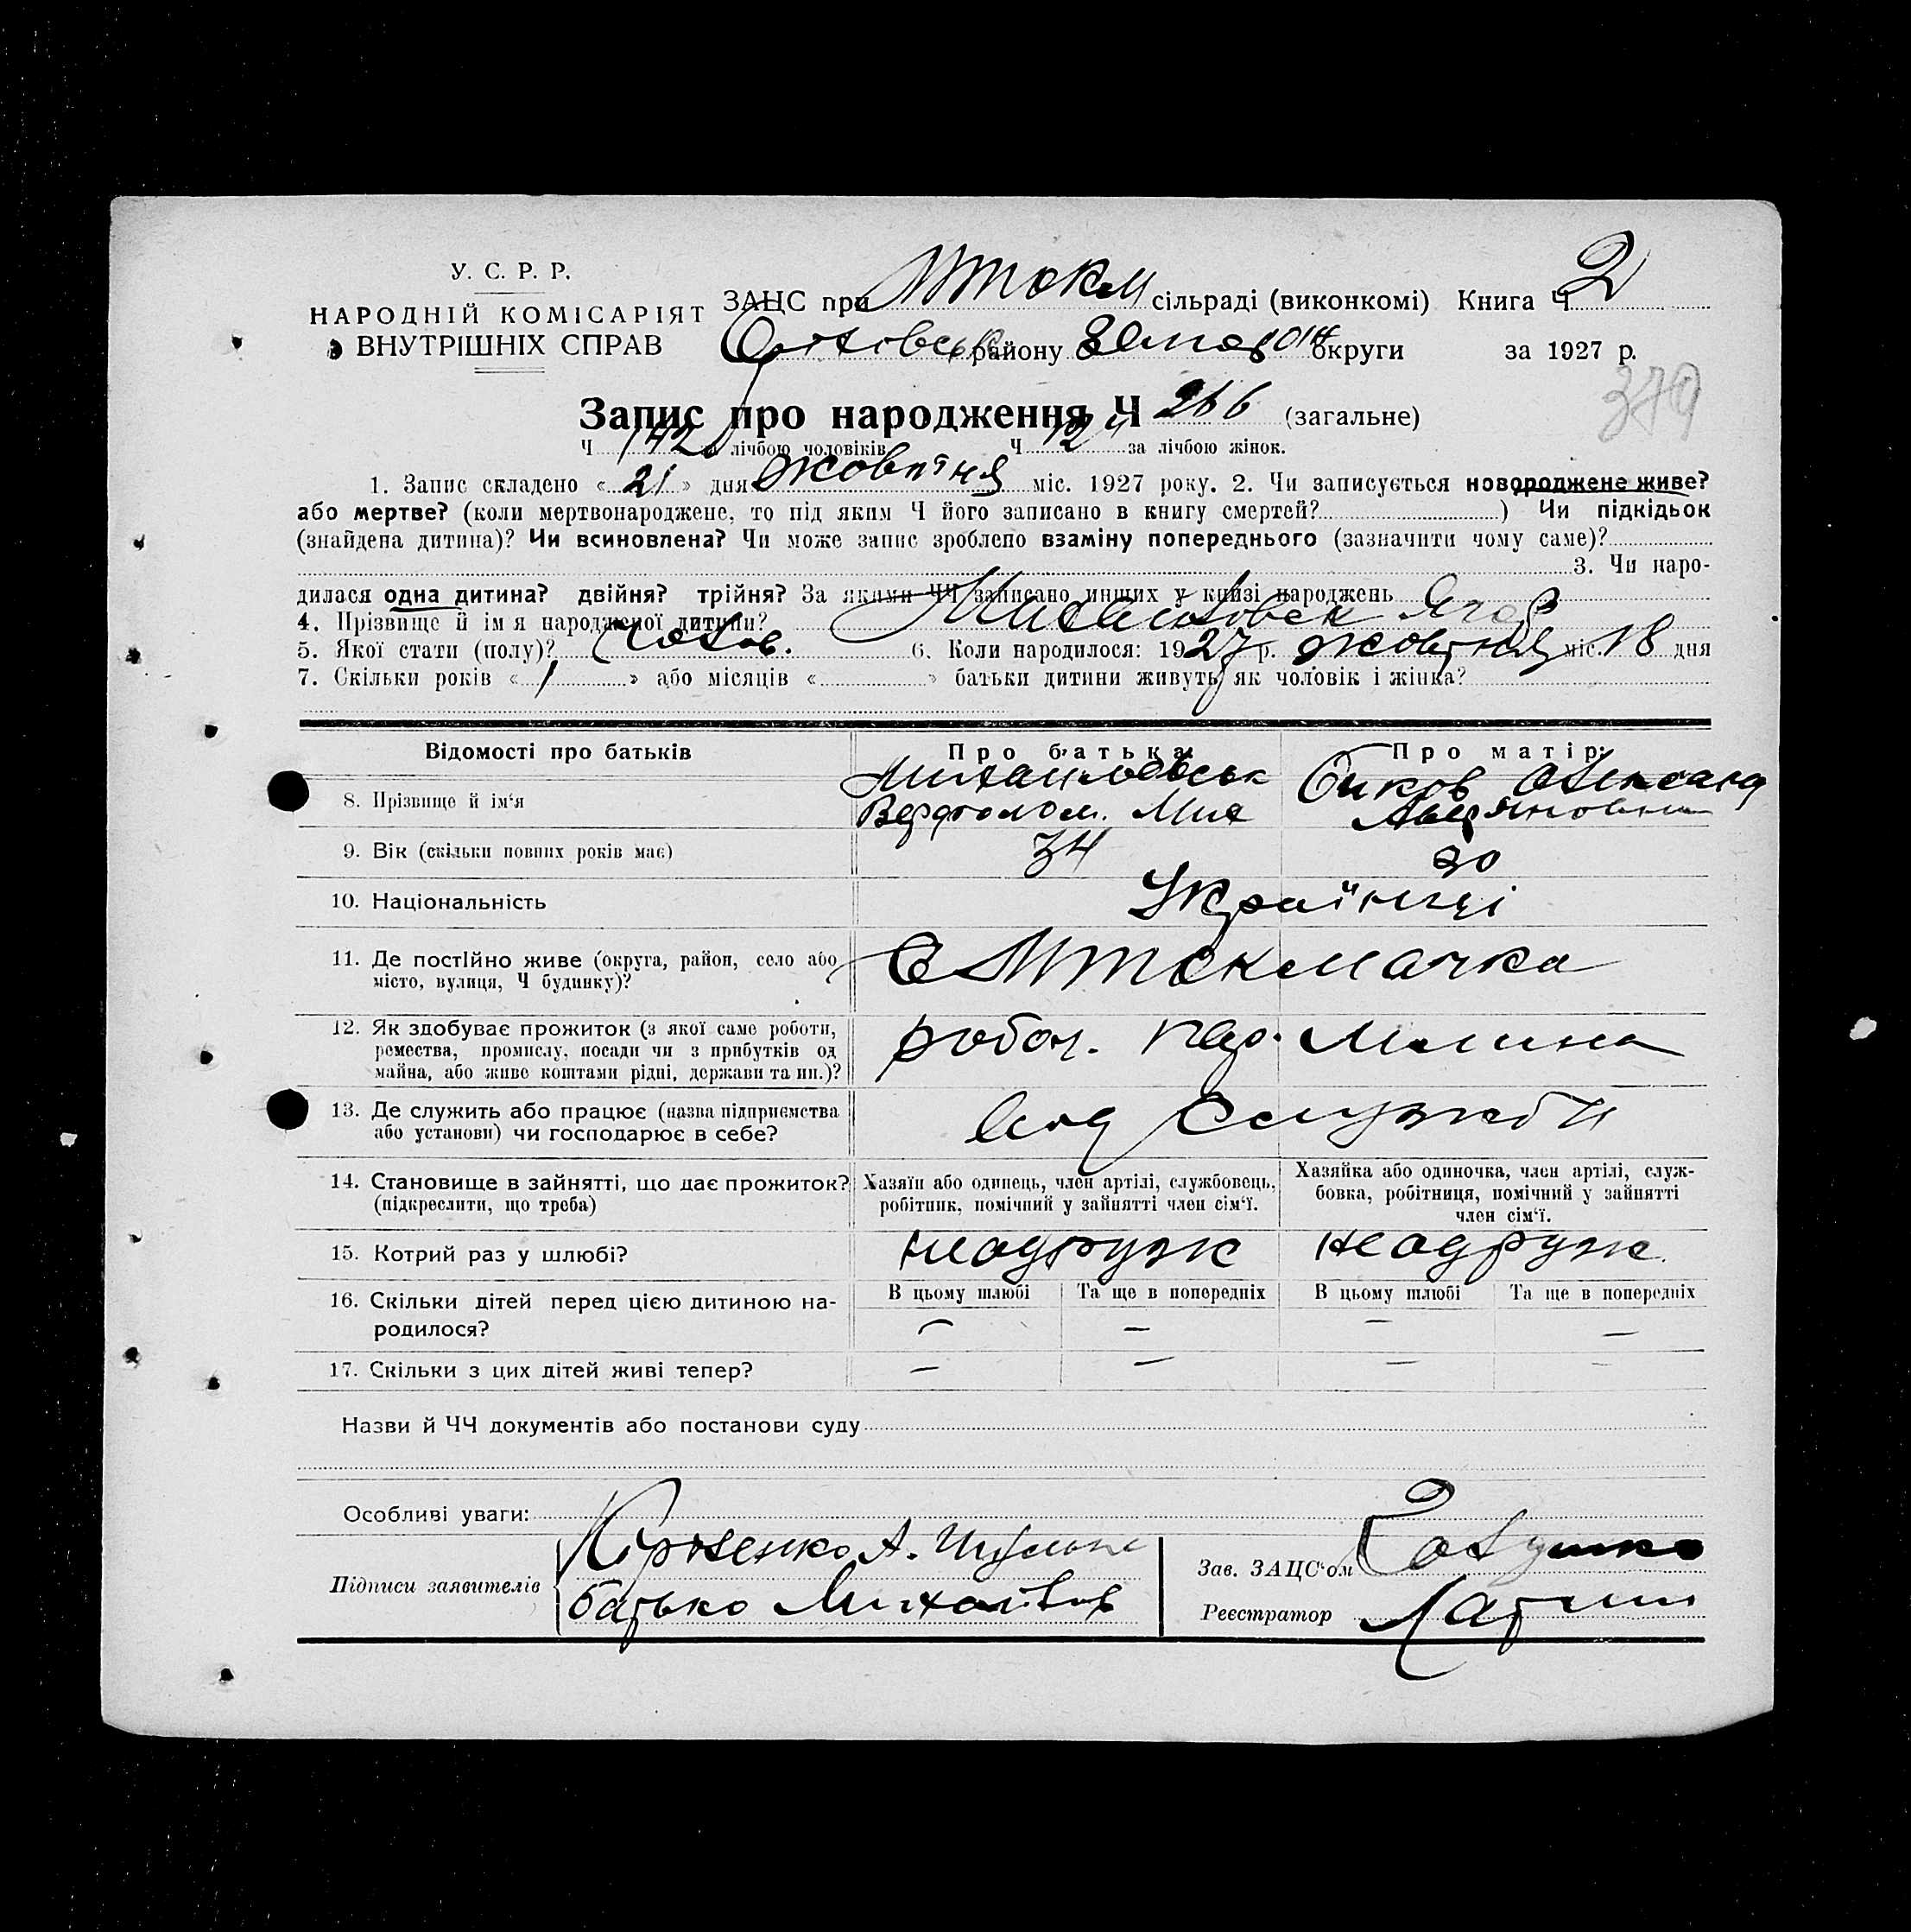 У. С. Р. Р.
НАРОДНІЙ КОМІСАРІЯТ
ВНУТРІШНІХ СПРАВ
ЗАЦС при МТокм сільраді (виконкомі) Книга Ч 2
Оріхівськ району Запоріж округи за 1927 р.
379
Запис про народження Ч 266 (загальне)
Ч 142 лічбою чоловіків Ч 124 за лічбою жінок.
1. Запис складено « 21 » дня жовтня міс. 1927 року. 2. Чи записується новороджене живе?
або мертве? (коли мертвонароджене, то під яким Ч його записано в книгу смертей? ) Чи підкідьок
(знайдена дитина)? Чи всиновлена? Чи може запис зроблено взаміну попереднього (зазначити чому саме)?
3. Чи наро-
дилася одна дитина? двійня? трійня? За якими ЧЧ записано инших у книзі народжень
4. Прізвище й ім я народженої дитини? Михайловськ
5. Якої стати (полу)? Чолов. 6. Коли народилося: 1927 р. жовтня міс. 18 дня
7. Скільки років « 1 » або місяців « » батьки дитини живуть як чоловік і жінка?
Відомості про батьків Про батька: Про матір:
8. Прізвище й ім'я Михайловськ Вартолом. Мих Биков Олександ Авер'яновна
9. Вік (скільки повних років має) 34 20
10. Національність Українці
11. Де постійно живе (округа, район, село або
місто, вулиця, Ч будинку)? С МТокмачка
12. Як здобуває прожиток (з якої саме роботи,
ремества, промислу, посади чи з прибутків од
майна, або живе коштами рідні, держави та ин.)? робоч. пар. млина
13. Де служить або працює (назва підприємства
або установи) чи господарює в себе? від служби
14. Становище в зайнятті, що дає прожиток?
(підкреслити, що треба)
Хазяїн або одинець, член артілі, службовець,
робітник, помічний у зайнятті член сім'ї.
Хазяйка або одиночка, член артілі, служ-
бовка, робітниця, помічний у зайнятті
член сім'ї.
15. Котрий раз у шлюбі? неодруж неодруж.
16. Скільки дітей перед цією дитиною на-
родилося?
В цьому шлюбі Та ще в попередніх В цьому шлюбі Та ще в попередніх
— — — —
17. Скільки з цих дітей живі тепер? — — — —
Назви й ЧЧ документів або постанови суду
Особливі уваги:
Підписи заявителів
А.
батько Михайлов
Зав. ЗАЦС'ом
Реєстратор